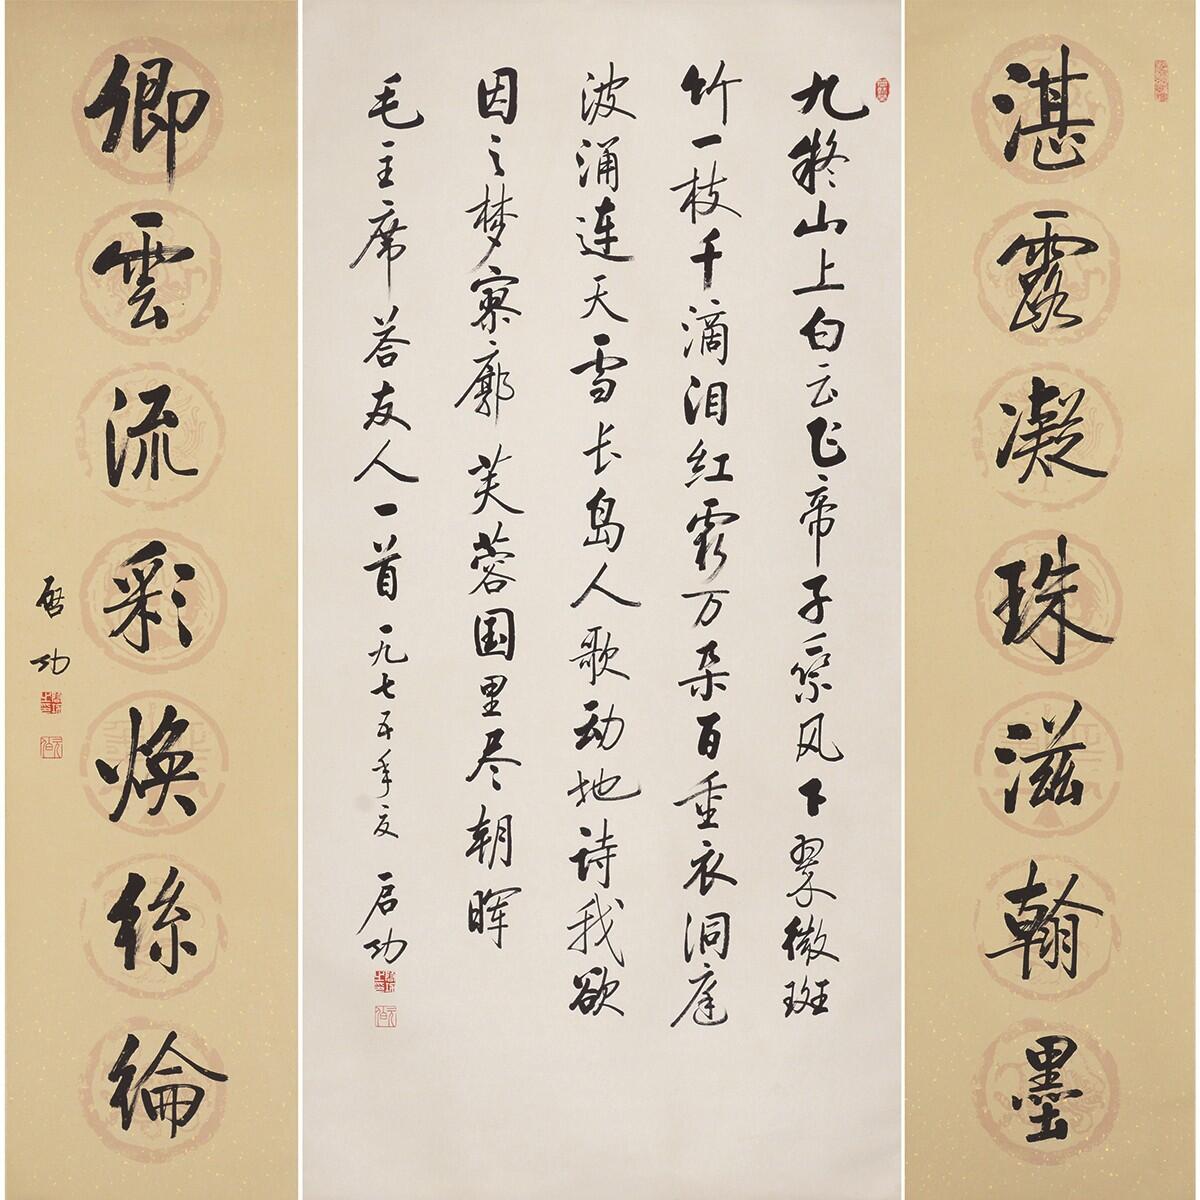 湛露凝珠滋翰墨
九疑山上白云飞帝子乘风下翠微斑
竹一枝千滴泪红霞万朵百重衣洞庭
波涌连天雪长岛人歌动地诗我欲
因之梦寥廓芙蓉国里尽朝晖
毛主席答友人一首 一九七五年夏 启功
卿雲流彩焕絲綸
啓功